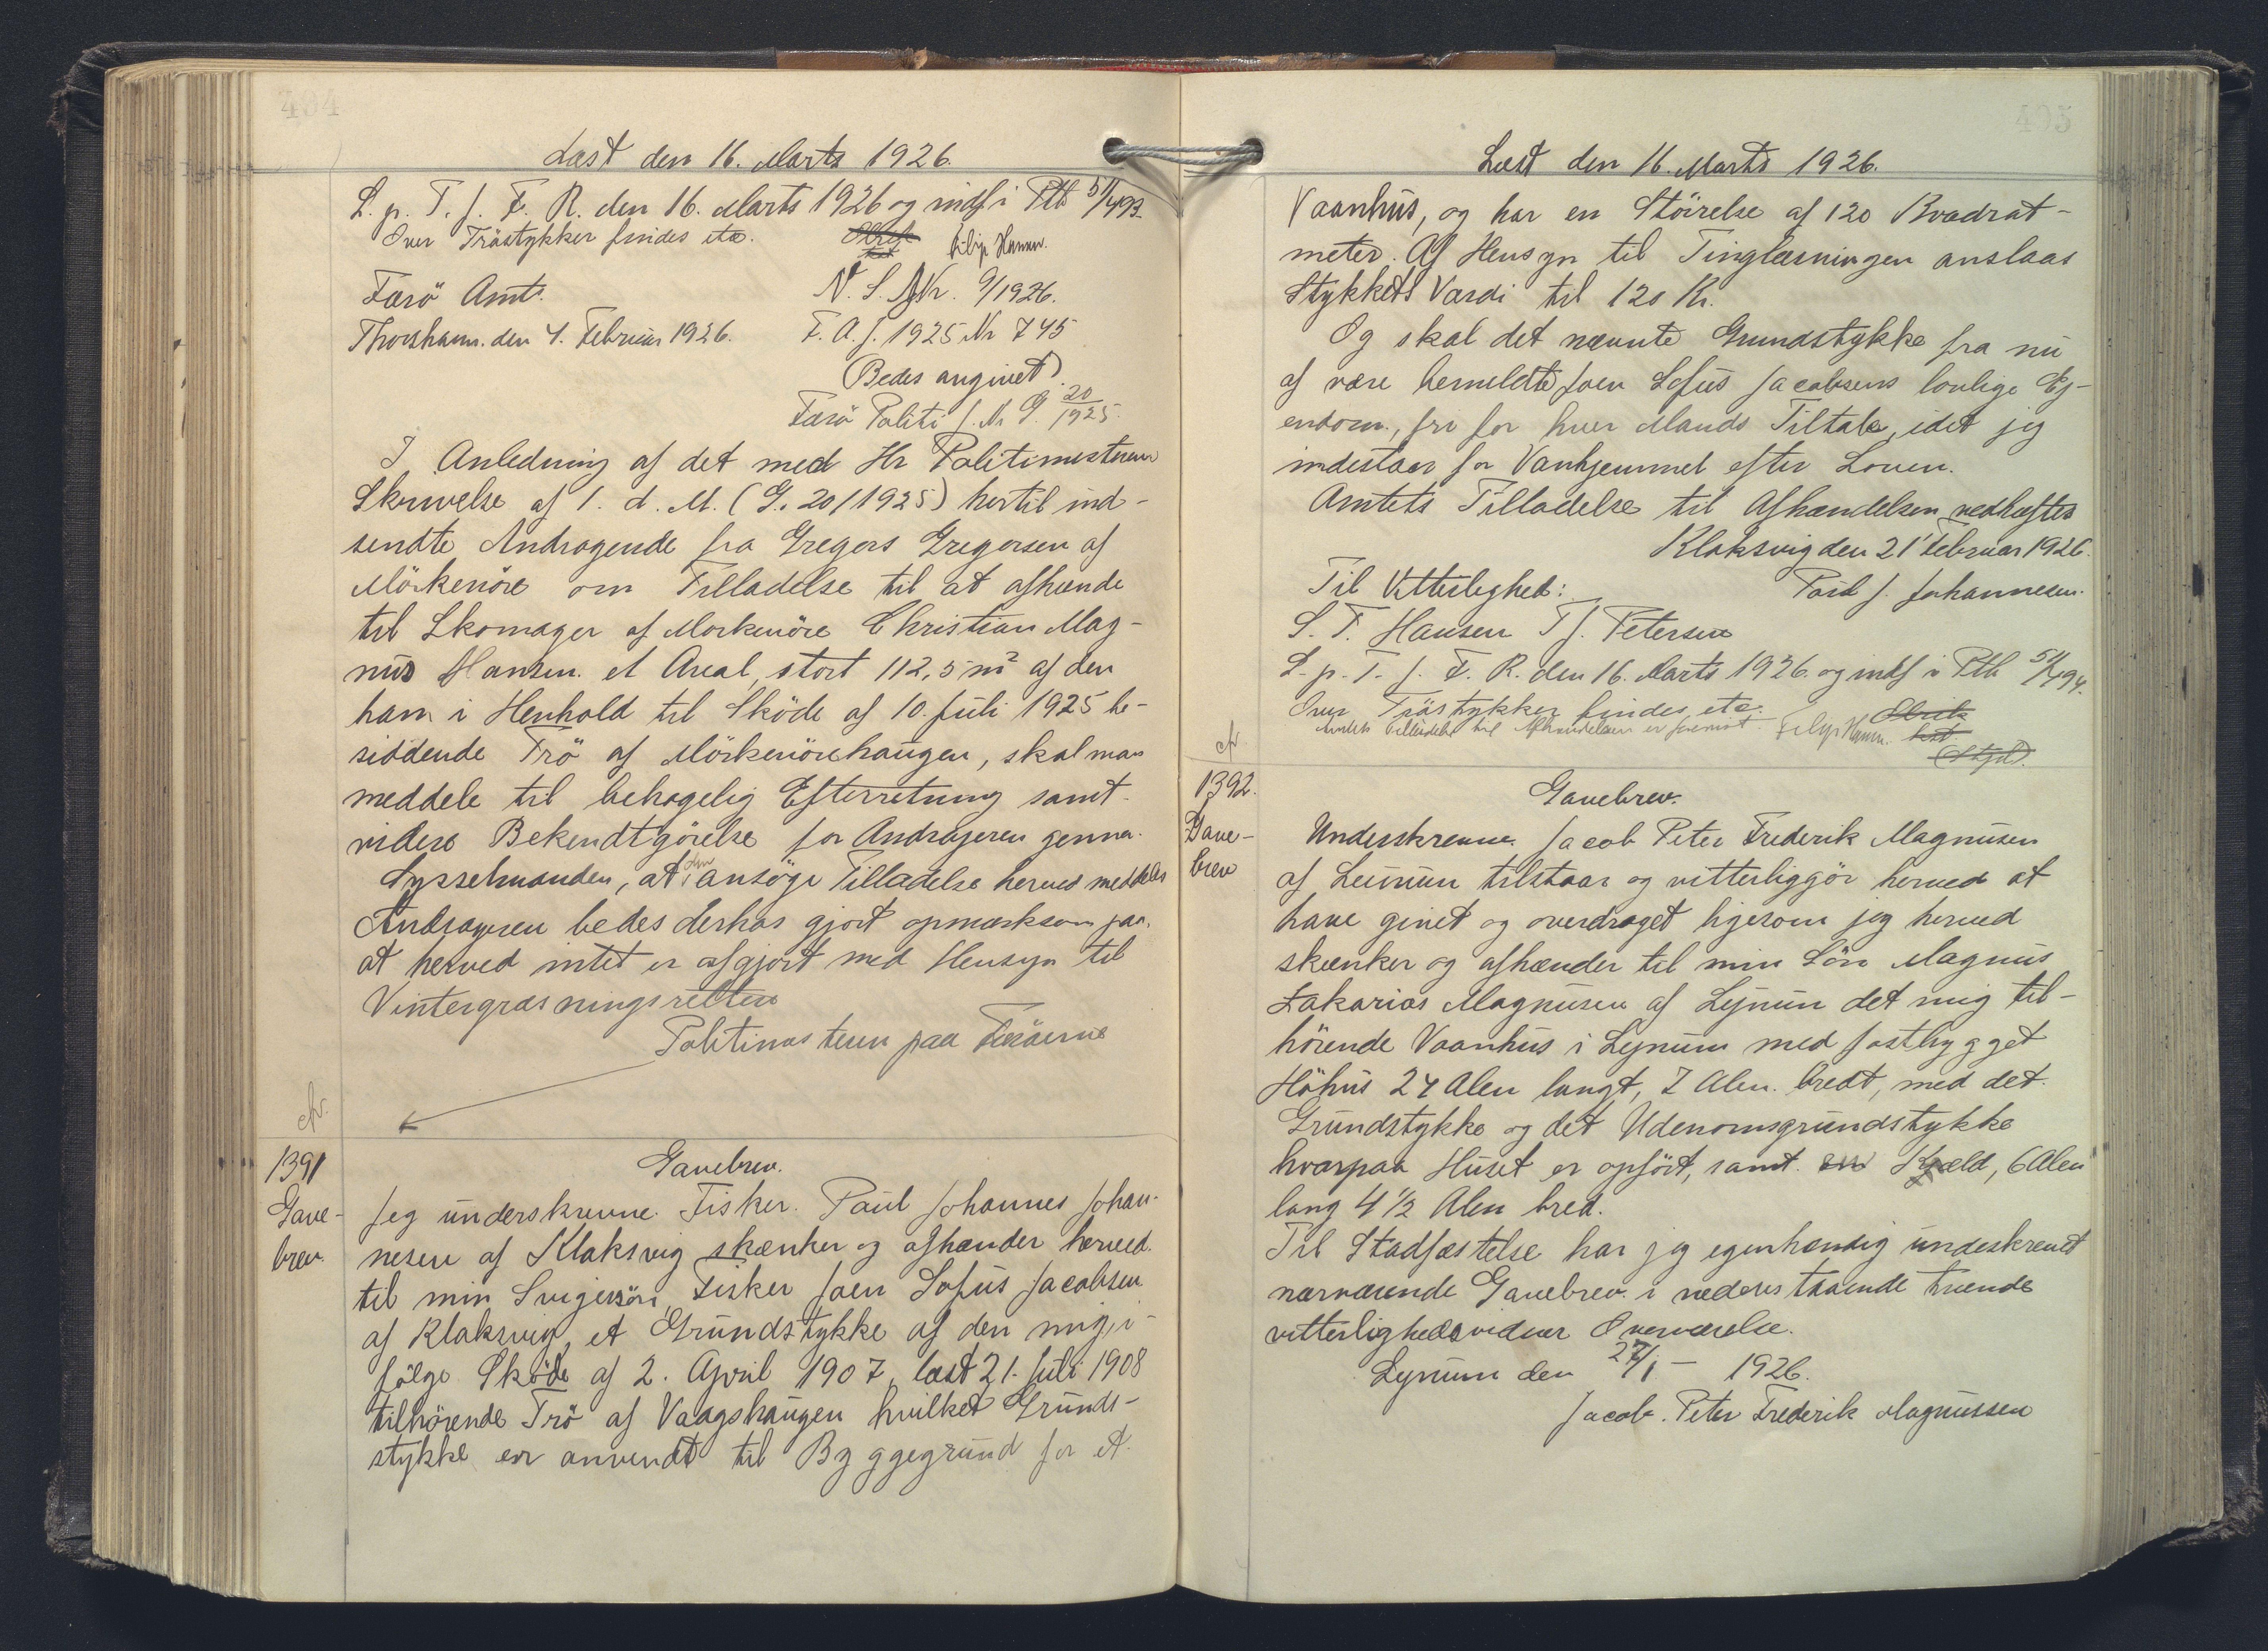 484
Læst den 16. Marts 1926.
L. p. T. f. F. R. den 16. Marts 1926 og indf i Ptb 51/493.
Over Tröstykker findes etc. Filip Hamm.
Færö Amt. N. S. J Nr. 9/1926.
Thorshavn. den 4. Februar 1926. F. A. J. 1925 Nr 745
(Bedes angivet)
Færö Politi J. Nr G 20/1925.
I Anledning af det med Hr Politimesterens
Skrivelse af 1. d. M. (G. 20/1925) hertil ind-
sendte Andragende fra Gregers Gregersen af
Mörkenöre om Tilladelse til at afhænde
til Skomager af Morkenöre Christian Mag-
nus Hansen. et Areal, stort 112,5 m² af den
ham i Henhold til Sköde af 10. Juli 1925 be-
siddende Trö af Mörkenörehaugen, skal man
meddele til behagelig Efterretning samt
videre Bekendtgörelse for Andrageren genne.
Sysselmanden, at den ansögte Tilladelse herved meddeles
Andrageren bedes derhos gjort opmærksom paa,
at herved intet er afgjort med Hensyn til
Vintergræsningsretten
Politimesteren paa Færöerne
Nr.
1391
Gave-
brev.
Gavebrev.
Jeg underskrevne. Fisker. Paul Johannes Johan-
nesen af Klaksvig skænker og afhænder herved.
til min Svigersön, Fisker Joen Sofus Jacobsen
af Klaksvig, et Grundstykke af den mig i-
fölge Sköde af 2. April 1907, læst 21. Juli 1908
tilhörende Trö af Vaagshaugen hvilket Grunds-
stykke er anvendt til Byggegrund for et
495
Læst den 16. Marts 1926.
Vaanhus, og har en Störrelse af 120 Kvadrat-
meter. Af Hensyn til Tinglæsningen anslaas
Stykkets Værdi til 120 Kr.
Og skal det nævnte Grundstykke fra nu
af være bemeldte Joen Sofus Jacobsens lovlige Ej-
endom, fri for hver Mands Tiltale, idet jeg
indestaar for Vanhjemmel efter Loven.
Amtets Tilladelse til Afhændelsen vedhæftes
Klaksvig den 21' Februar 1926.
Til Vitterlighed: Poul J. Johannesen.
S. F. Hansen T J. Petersen
L. p. T. f. F. R. den 16. Marts 1926 og indf i Ptb 51/494.
Over Tröstykker findes etc.
Amtets Tilladelse til Afhændelsen er forevist. Filip Hamm.
Nr
1392.
Gave-
brev
Gavebrev.
Underskrevne. Jacob Peter Frederik Magnusen
af Leinum tilstaar og vitterliggör herved at
have givet og overdraget ligesom jeg herved
skænker og afhænder til min Sön Magnus
Zakarias Magnusen af Lejnum det mig til-
hörende Vaanhus i Lejnum med fastbygget
Höhus 24 Alen langt, 7 Alen. bredt, med det
Grundstykke og det Udenomsgrundstykke
hvorpaa Huset er opfört, samt. en Kjæld, 6 Alen
lang 4 ½ Alen bred.
Til Stadfæstelse har jeg egenhændig underskrevet
nærværende Gavebrev i nederstaaende tvende
vitterlighedsvidner Overværelse.
Lynum den 27/1 - 1926.
Jacob. Peter Frederik Magnussen